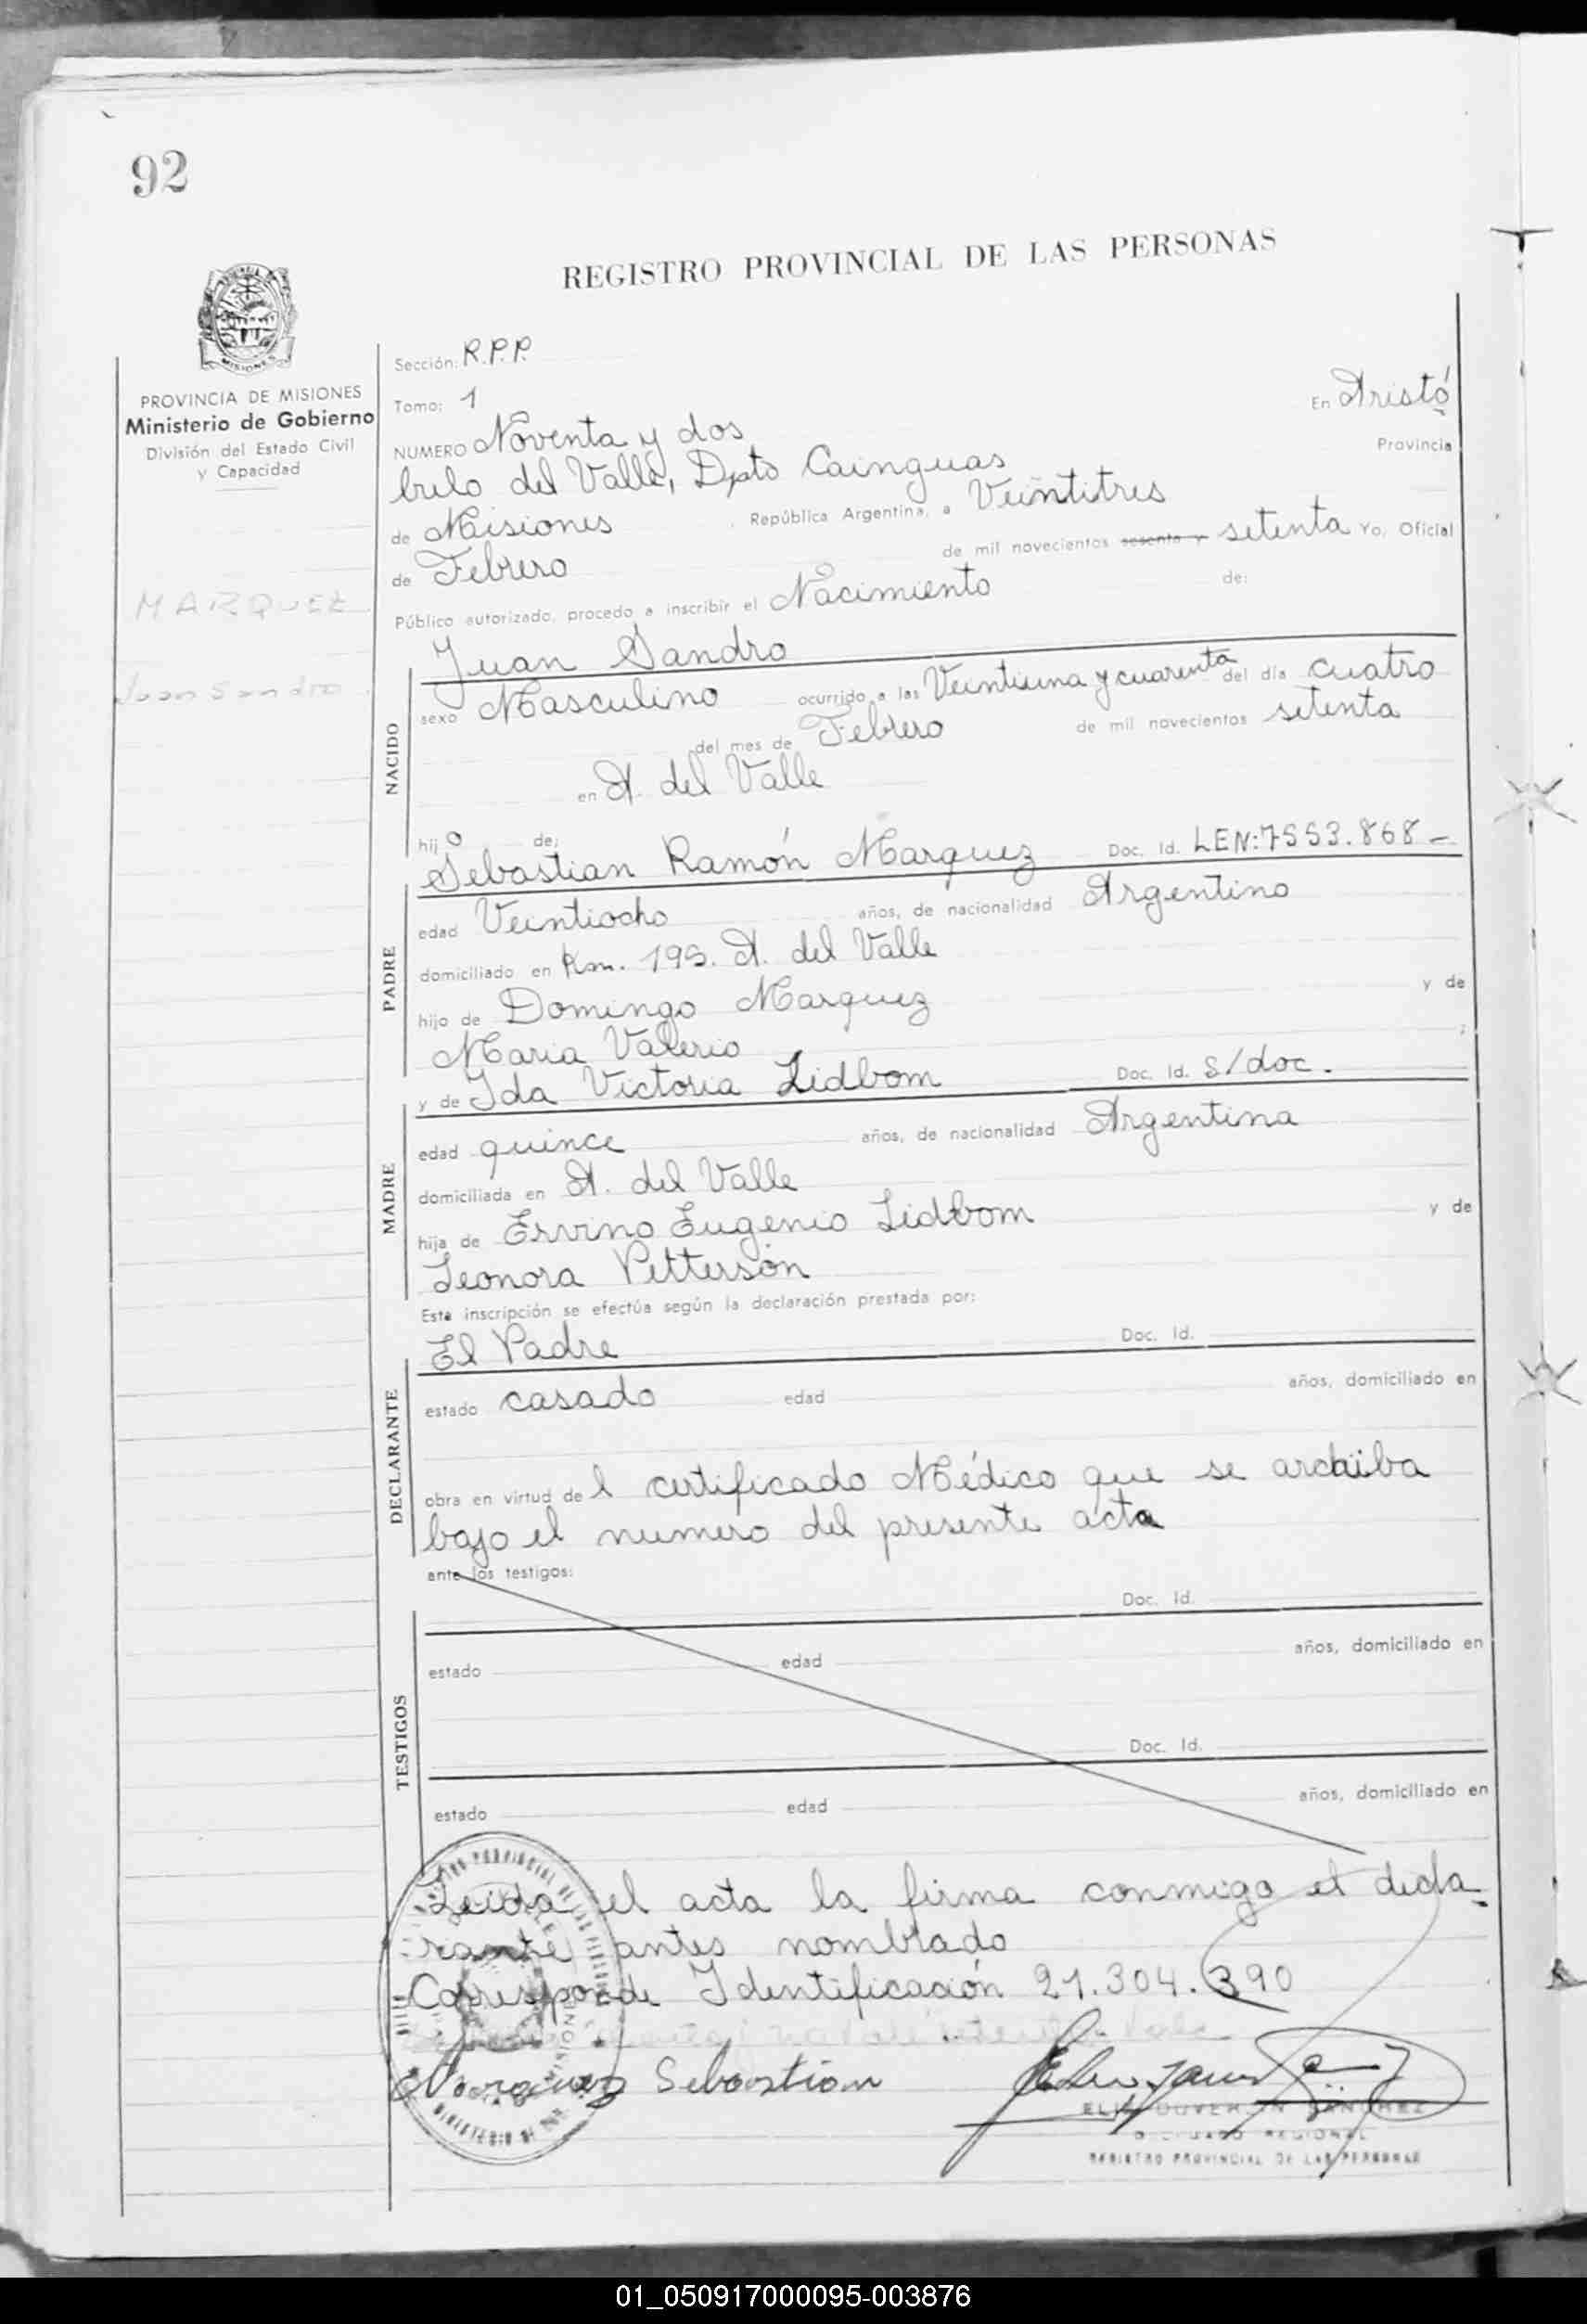 92
REGISTRO PROVINCIAL DE LAS PERSONAS
MISIONES
PROVINCIA DE MISIONES
Ministerio de Gobierno
División del Estado Civil
y Capacidad
MARQUEZ
Juan Sandro
Sección: R.P.P.
Tomo: 1 En Aristó
NUMERO Noventa y dos Provincia
bulo del Valle, Dpto Cainguas
de Misiones República Argentina, a Veintitres
de Febrero de mil novecientos sesenta y setenta Yo, Oficial
Público autorizado, procedo a inscribir el Nacimiento de:
Juan Sandro
NACIDO
sexo Masculino ocurrido a las Veintiuna y cuarenta del día cuatro
del mes de Febrero de mil novecientos setenta
en A. del Valle
hijo de:
Sebastian Ramón Marquez Doc. Id. LEN:7553.868-
PADRE
edad Veintiocho años, de nacionalidad Argentino
domiciliado en Km. 195. A. del Valle
hijo de Domingo Marquez y de
Maria Valerio ;
y de Ida Victoria Lidbom Doc. Id. S/doc.
MADRE
edad quince años, de nacionalidad Argentina
domiciliada en A. del Valle
hija de Ervino Eugenio Lidbom y de
Leonora Petterson
Esta inscripción se efectúa según la declaración prestada por:
El Padre Doc. Id.
DECLARANTE
estado casado edad años, domiciliado en
obra en virtud del certificado Médico que se archiba
bajo el numero del presente acta
ante los testigos:
Doc. Id.
TESTIGOS
estado edad años, domiciliado en
Doc. Id.
estado edad años, domiciliado en
Leida el acta la firma conmigo el decla-
rante antes nombrado
Corresponde Identificación 21.304.390
Marquez Sebastian
SANCHEZ
REGIONAL
REGISTRO PROVINCIAL DE LAS PERSONAS
01_050917000095-003876